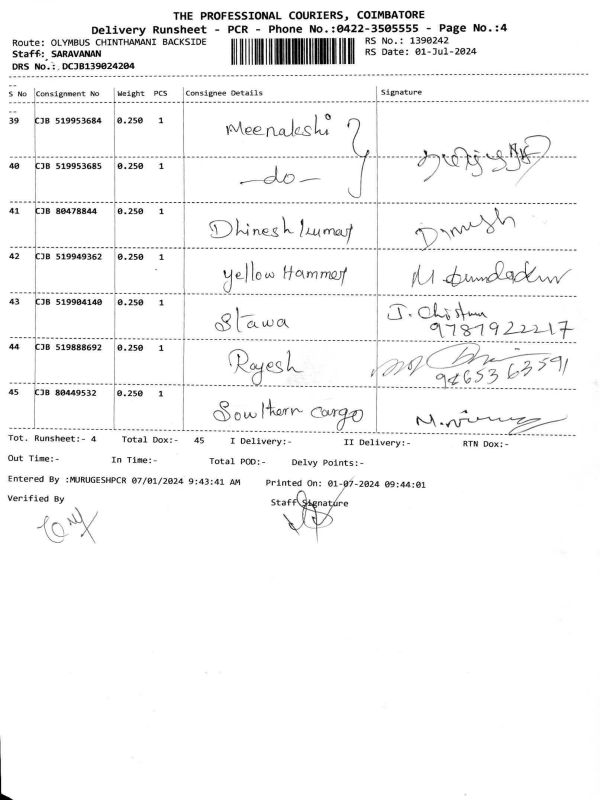 THE PROFESSIONAL COURIERS, COIMBATORE
Delivery Runsheet - PCR - Phone No.:0422-3505555 - Page No.:4
Route: OLYMBUS CHINTHAMANI BACKSIDE RS No.: 1390242
Staff: SARAVANAN RS Date: 01-Jul-2024
DRS No.: DCJB139024204
S No Consignment No Weight PCS Consignee Details Signature
39 CJB 519953684 0.250 1 Meenakshi
40 CJB 519953685 0.250 1 -do-
41 CJB 80478844 0.250 1 Dhinesh kumar Dinesh
42 CJB 519949362 0.250 1 Yellow Hammer
43 CJB 519904140 0.250 1 Stawa J.
9787922217
44 CJB 519888692 0.250 1 Rajesh
9865363591
45 CJB 80449532 0.250 1 Southern cargo M.
Tot. Runsheet:- 4 Total Dox:- 45 I Delivery:- II Delivery:- RTN Dox:-
Out Time:- In Time:- Total POD:- Delvy Points:-
Entered By :MURUGESHPCR 07/01/2024 9:43:41 AM Printed On: 01-07-2024 09:44:01
Verified By Staff Signature